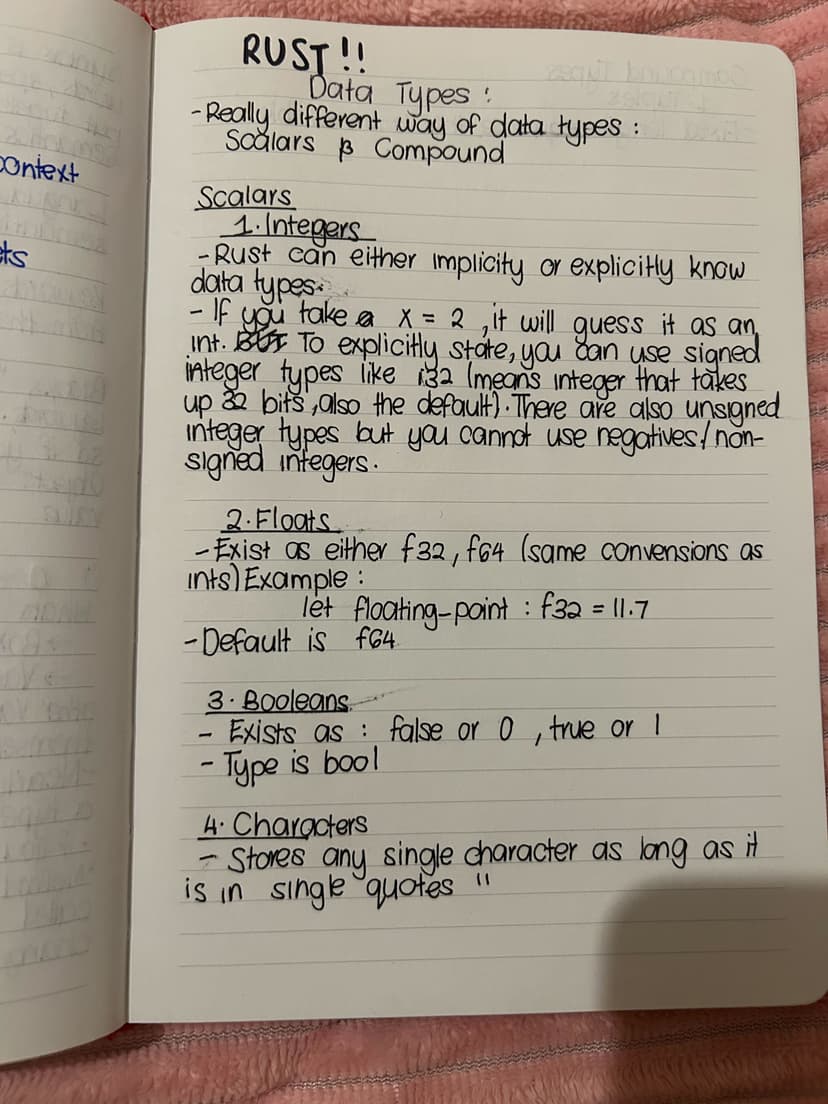 RUST!!
Data Types:
-Really different way of data types:
Scalars & Compound
context
Scalars
1.Integers
-Rust can either implicity or explicitly know
data types.
ets
- If you take a x = 2, it will guess it as an
int. BUT To explicitly state, you can use signed
integer types like i32 (means integer that takes
up 32 bits, also the default). There are also unsigned
integer types but you cannot use negatives/non-
signed integers.
2.Floats
-Exist as either f32, f64 (same convensions as
ints) Example:
let floating-point : f32 = 11.7
-Default is f64
3. Booleans
- Exists as : false or 0, true or 1
- Type is bool
4. Characters
- Stores any single character as long as it
is in single quotes ''